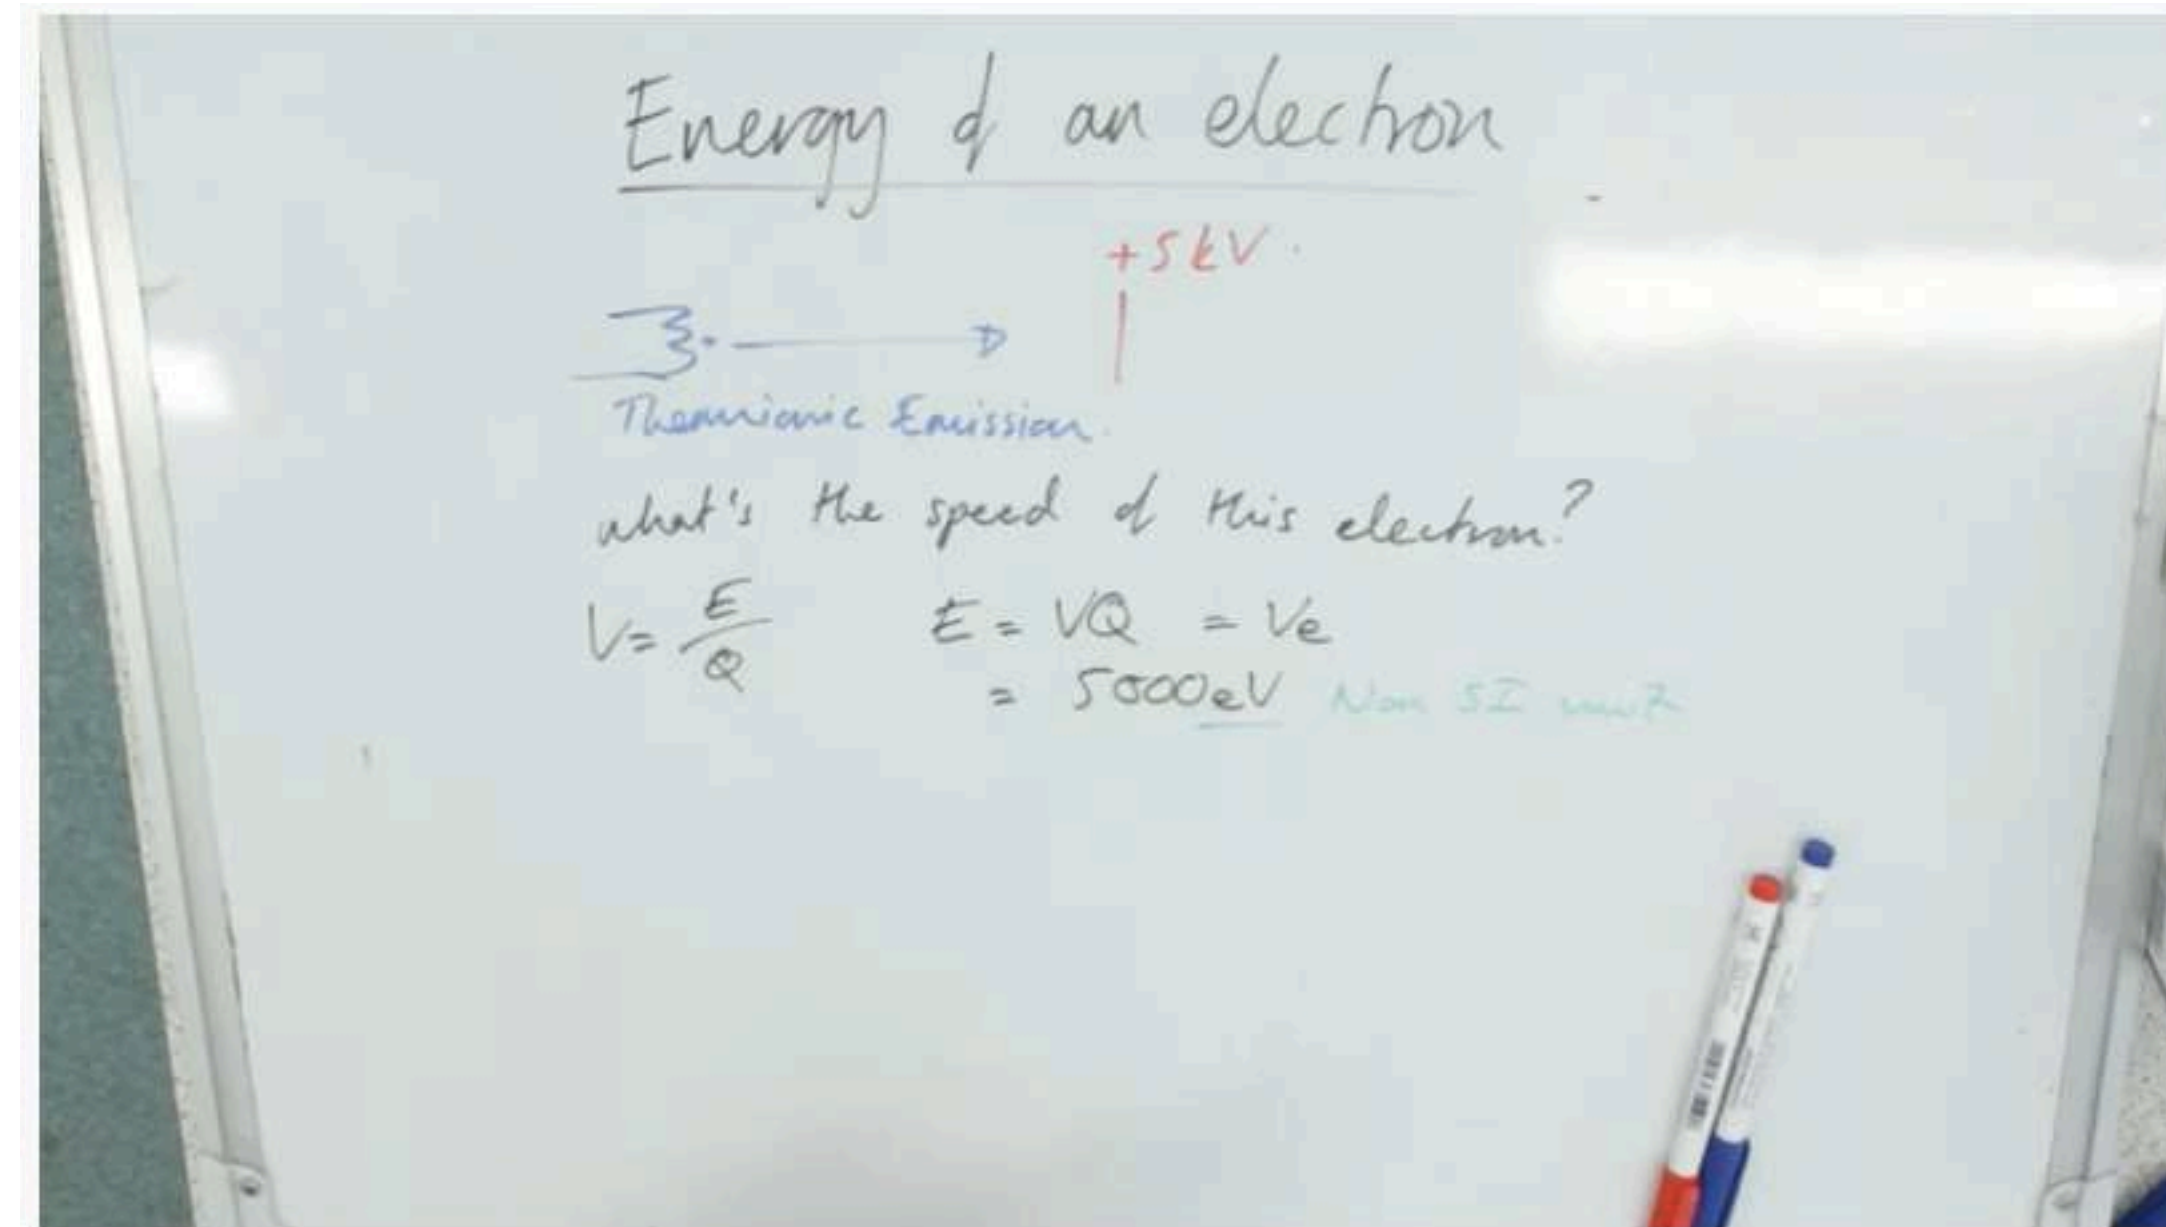 Energy of an electron
+5kV
Thermionic Emission.
what's the speed of this electron?
V = E/Q E = VQ = Ve
= 5000eV Non SI unit